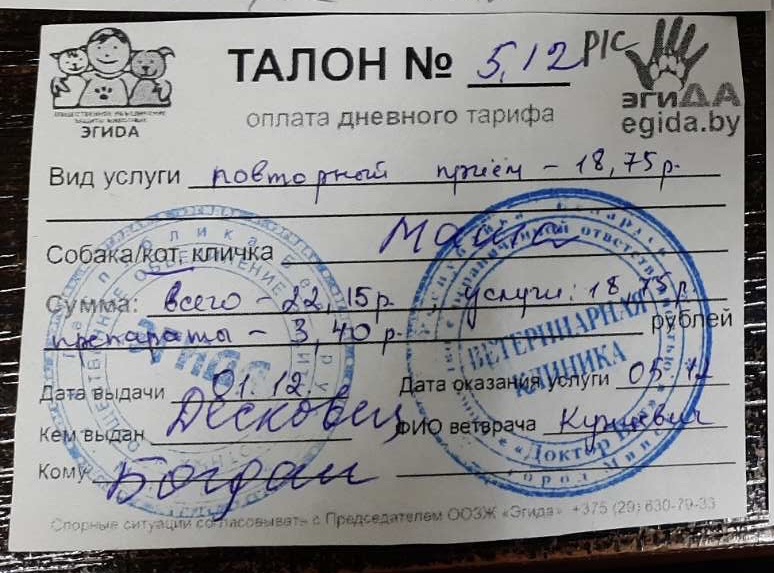 ТАЛОН № 5,12 Р/С
ОБЩЕСТВЕННОЕ ОБЪЕДИНЕНИЕ
ЗАЩИТЫ ЖИВОТНЫХ
ЭГИДА
ЭГИДА
egida.by
оплата дневного тарифа
Вид услуги повторный приём – 18,75 р.
Собака/кот, кличка
Сумма: всего – 22,15 р. услуги: 18,75 р.
препараты – 3,40 р. рублей
Дата выдачи 01.12. Дата оказания услуги 05.12
Кем выдан Десковец ФИО ветврача
Кому Богдан
Спорные ситуации согласовывать с Председателем ООЗЖ «Эгида» +375 (29) 630-79-33
ВЕТЕРИНАРНАЯ
КЛИНИКА
город Минск